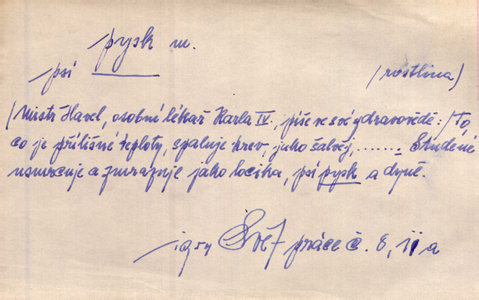 pysk m.
psí (rostlina)
(Mistr Havel, osobní lékař Karla IV., píše ve své ydravovědě:) To,
co je přílišné teploty, spaluje krev, jako šalvěj, ....... Studené
usmrcuje a zmrazuje jako locika, psí pysk a dyně.
práce č. 8, 11 a